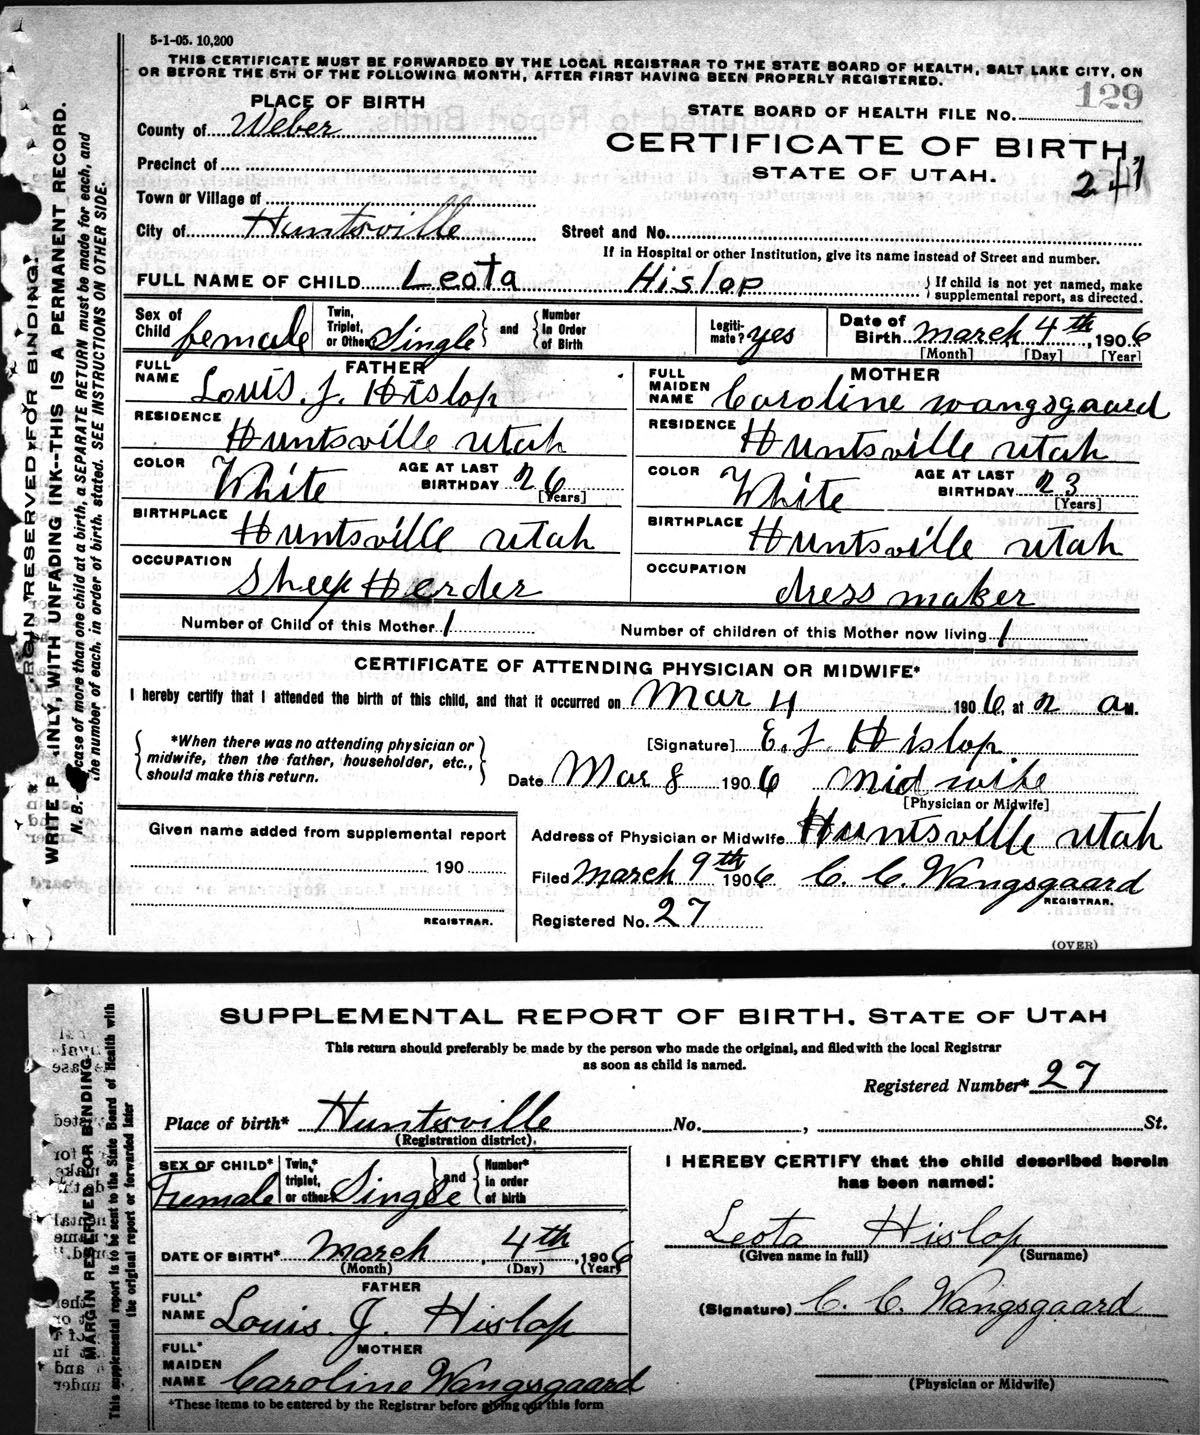 5-1-05. 10,200
THIS CERTIFICATE MUST BE FORWARDED BY THE LOCAL REGISTRAR TO THE STATE BOARD OF HEALTH, SALT LAKE CITY, ON
OR BEFORE THE 5TH OF THE FOLLOWING MONTH, AFTER FIRST HAVING BEEN PROPERLY REGISTERED.
129
PLACE OF BIRTH
STATE BOARD OF HEALTH FILE NO.
County of Weber
CERTIFICATE OF BIRTH,
Precinct of
STATE OF UTAH.
241
Town or Village of
City of Huntsville
Street and No.
If in Hospital or other Institution, give its name instead of Street and number.
FULL NAME OF CHILD Leota Hislop
If child is not yet named, make
supplemental report, as directed.
Sex of Child female
Twin, Triplet, or Other Single and Number in Order of Birth
Legiti-mate? yes
Date of Birth March 4th, 1906
[Month] [Day] [Year]
FATHER
FULL NAME Louis. J. Hislop
RESIDENCE Huntsville Utah
COLOR White AGE AT LAST BIRTHDAY 26 [Years]
BIRTHPLACE Huntsville Utah
OCCUPATION Sheep Herder
MOTHER
FULL MAIDEN NAME Caroline Wangsgaard
RESIDENCE Huntsville Utah
COLOR White AGE AT LAST BIRTHDAY 23 [Years]
BIRTHPLACE Huntsville Utah
OCCUPATION dress maker
Number of Child of this Mother 1
Number of children of this Mother now living 1
CERTIFICATE OF ATTENDING PHYSICIAN OR MIDWIFE*
I hereby certify that I attended the birth of this child, and that it occurred on Mar 4 1906, at 2 a M.
*When there was no attending physician or
midwife, then the father, householder, etc.,
should make this return.
[Signature] E. J Hislop
Date Mar 8 1906 Mid wife
[Physician or Midwife]
Given name added from supplemental report
190
REGISTRAR.
Address of Physician or Midwife Huntsville Utah
Filed March 9th 1906 C. C. Wangsgaard
REGISTRAR.
Registered No. 27
(OVER)
RESERVED FOR BINDING.
WRITE INLY, WITH UNFADING INK--THIS IS A PERMANENT RECORD.
N. B.- case of more than one child at a birth, a SEPARATE RETURN must be made for each, and
the number of each, in order of birth, stated. SEE INSTRUCTIONS ON OTHER SIDE.
SUPPLEMENTAL REPORT OF BIRTH, STATE OF UTAH
This return should preferably be made by the person who made the original, and filed with the local Registrar
as soon as child is named.
Registered Number* 27
Place of birth* Huntsville No. , St.
(Registration district).
SEX OF CHILD* Female
Twin,* triplet, or other Single and Number* in order of birth
I HEREBY CERTIFY that the child described herein
has been named:
Leota Hislop
(Given name in full) (Surname)
DATE OF BIRTH* March, 4th, 1906
(Month) (Day) (Year)
FATHER
FULL* NAME Louis. J. Hislop
(Signature) C. C. Wangsgaard
MOTHER
FULL* MAIDEN NAME Caroline Wangsgaard
(Physician or Midwife)
*These items to be entered by the Registrar before giving out this form
MARGIN RESERVED FOR BINDING
This supplemental report is to be sent to the State Board of Health with
the original report or forwarded later